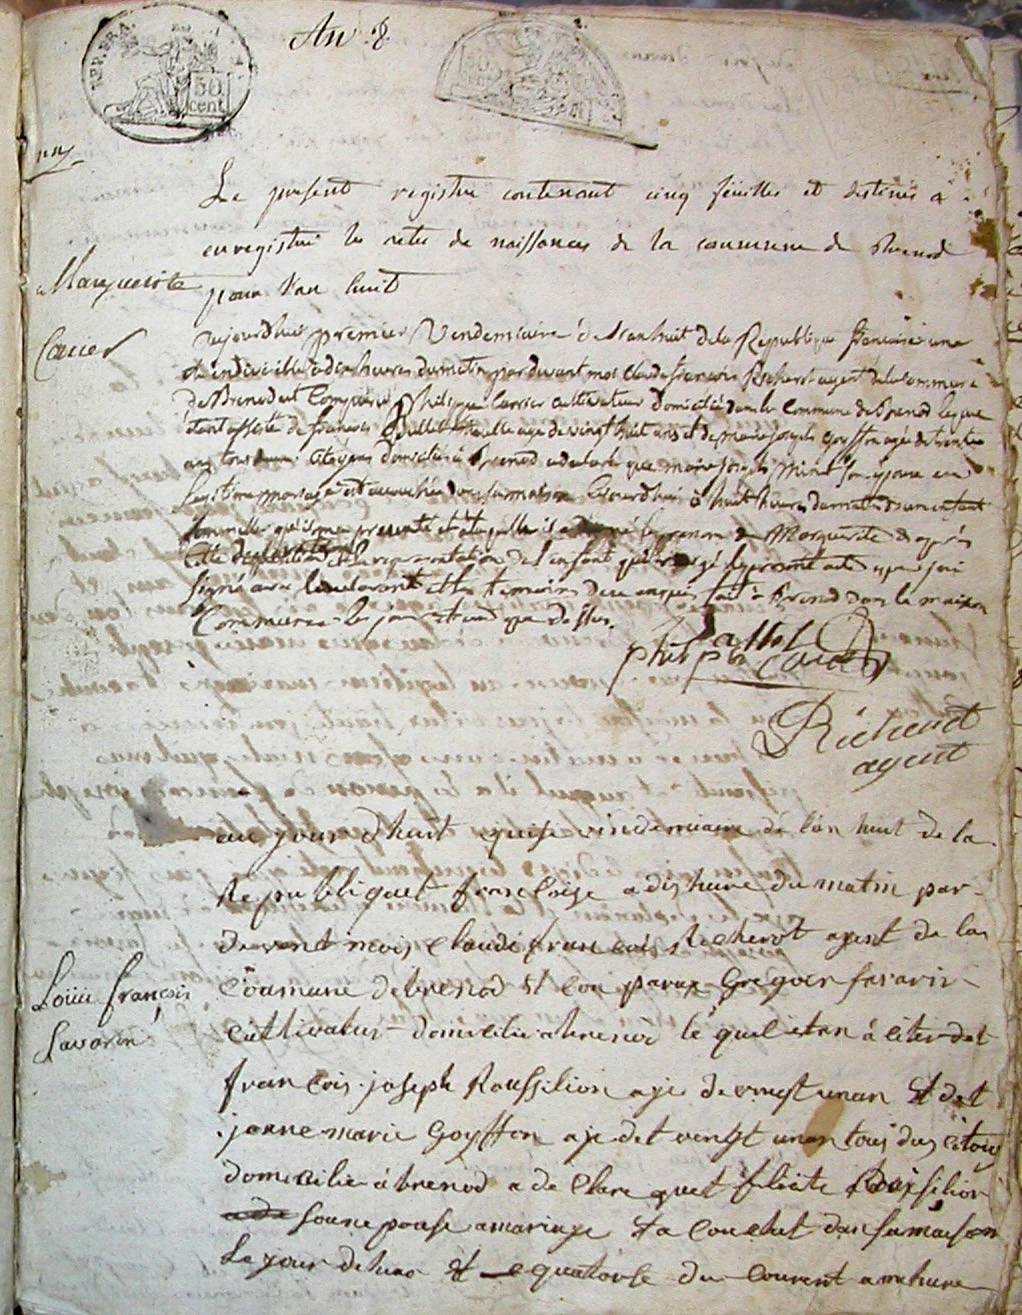 REP. FRA.
50
cent
An 8
Le present registre contenant cinq feuilles et destinés à
enregistrer les actes de naissances de la commune de Brenod
pour l'an huit
Marguerite
Carrier
aujourd'hui premier Vendemiaire de l'an huit de la Republique francaise une
et indivisible à dix heures du matin par devant moi Claude francois Richerot agent de la commune
de Brenod est Comparu Philippe Carrier cultivateur domicilié dans la Commune de Brenod lequel
étant assisté de francois age de vingt huit ans et de marie joseph Goyffon agée de trente
ans tous deux Citoyens domiciliés à Brenod a declaré que marie joseph son epouse en
legitime mariage est accouchée dans sa maison Cejourd'hui à huit heures du matin d'un enfant
femelle qu'il m'a presenté et auquel il a donné le prenom de Marguerite d'après
Cette declaration et la representation de l'enfant j'ai redigé le present acte que j'ai
signé avec le declarant et les temoins de ce enquis fait à Brenod dans la maison
Commune les jour et an que dessus.
philippe Carrier
Richerot
agent
au jour dhuit quise vindemiaire de l'an huit de la
Republiquet francoise a dix heure du matin par
devent mois Claude francois Richerot agent de la
Coumune debrenod et Con parux Gregoir favarin
Cultivatur domicilie abrenod le quel etan à cister det
Louis françois
Savarin
francois joseph Roussilion aje de vingt unan et det
janne marie Goyffon aje det vengt unan tous dus citoien
domicilie à brenod a de Clare quet felicite Roussilion
soune pouse amariage et a Couchut dan sa maison
Le jour dehier et quatorse du Courent a me heure